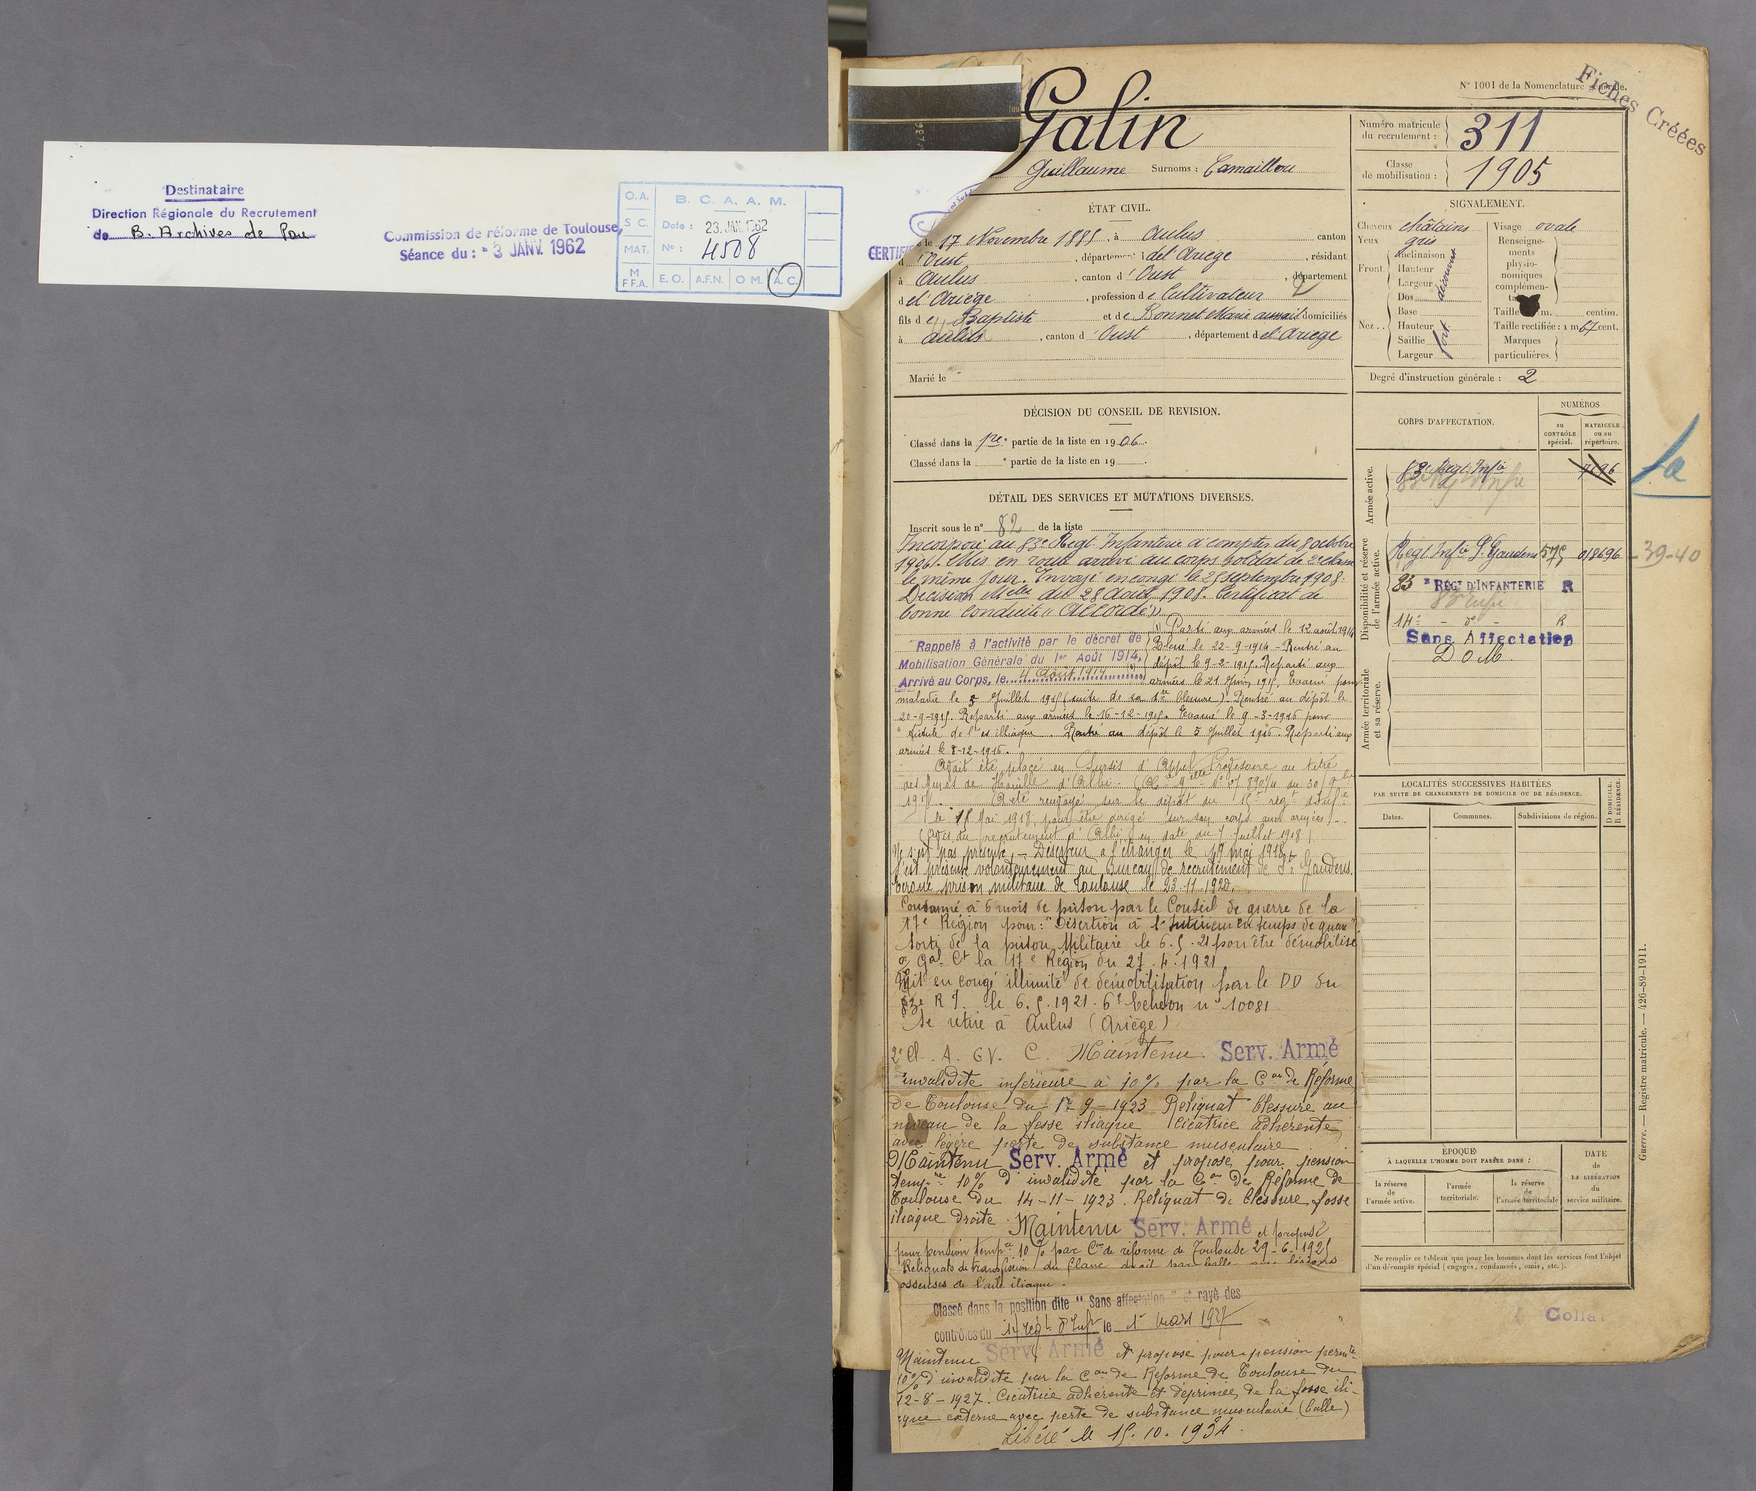 Destinataire
Direction Régionale du Recrutement
de B. Archives de Pau
Commission de réforme de Toulouse,
Séance du : - 3 JANV. 1962
O.A.
S C.
MAT.
M
F F.A.
B. C. A. A. M.
Date : 23 JAN. 1962
N° : 4508
E. O.
A.F.N.
O M.
A. C.
CERTIFI
Galin
Guillaume Surnoms : Camaillou
N° 1001 de la Nomenclature générale.
Fiches Créées
Numéro matricule
du recrutement : 311
Classe
de mobilisation : 1905
ÉTAT CIVIL.
le 17 Novembre 1885, à Aulus canton
d'Oust, département de l'Ariège, résidant
à Aulus, canton d'Oust, département
de l'Ariège, profession de Cultivateur
fils de Baptiste et de Bonnet Marie domiciliés
à Aulus, canton d'Oust, département de l'Ariège
Marié le
SIGNALEMENT.
Cheveux châtains
Yeux gris
Front. Inclinaison
Hauteur
Largeur
Nez. Dos
Base
Hauteur fort
Saillie
Largeur
Visage ovale
Renseigne-
ments
physio-
nomiques
complémen-
Taille m. centim.
Taille rectifiée : 1 m 67 cent.
Marques
particulières.
Degré d'instruction générale : 2
DÉCISION DU CONSEIL DE REVISION.
Classé dans la 1re partie de la liste en 1906.
Classé dans la e partie de la liste en 19
DÉTAIL DES SERVICES ET MUTATIONS DIVERSES.
Inscrit sous le n° 82 de la liste
Incorporé au 83e Regt. Infanterie à compter du 8 octobre
1906. Mis en route arrivé au corps soldat de 2e classe
le même jour. Envoyé en congé le 25 septembre 1908.
Décision Mlle du 28 Août 1908. Certificat de
bonne conduite "Accordé".
Rappelé à l'activité par le décret de
Mobilisation Générale du 1er Août 1914.
Arrivé au Corps, le 4 août 1914
Parti aux armées le 12 août 1914
Blessé le 22-9-1914 - Rentré au
dépôt le 9-2-1915. Reparti aux
armées le 21 Juin 1915, Evacué pour
maladie le 5 Juillet 1915 (suite de sa 1re blessure). Rentré au dépôt le
20-9-1915. Reparti aux armées le 16-12-1915. Evacué le 9-3-1916 pour
fistule de l'os illiaque. Rentré au dépôt le 5 Juillet 1916. Reparti aux
armées le 8-12-1916.
Avait été placé en Sursis d'Appel Provisoire au titre
des Mines de Houille d'Albi
le 18 Mai 1918, pour être dirigé sur son corps aux armées.
(avis du recrutement d'Albi en date du 7 Juillet 1918)
Ne s'est pas présenté. - Déserteur à l'étranger le 19 mai 1918.
S'est présenté volontairement au bureau de recrutement de St Gaudens.
Ecroué prison militaire de Toulouse le 23.11.1920.
Condamné à 6 mois de prison par le Conseil de guerre de la
17e Région pour : "Désertion à l'Intérieur en temps de guerre"
Sorti de la prison Militaire le 6.5.21 pour être démobilisé
Gal Ct la 17e Région du 27.4.1921
Mis en congé illimité de démobilisation par le DD du
83e R.I. le 6.5.1921. 6e Echelon n° 10081
Se retire à Aulus (Ariège)
Maintenu Serv. Armé
invalidité inférieure à 10% par la Con de Réforme
de Toulouse du 17-9-1923 Reliquat blessure au
niveau de la fesse iliaque (cicatrice adhérente
avec légère perte de substance musculaire
Maintenu Serv. Armé et proposé pour pension
temp.re 10% d'invalidité par la Con de Réforme de
Toulouse du 14-11-1923. Reliquat de blessure fosse
iliaque droite. Maintenu Serv. Armé et proposé
pour pension temp.re 10% par Con de réforme de Toulouse 29-6-1925
Reliquats de transfixion du flanc droit par balle avec lésions
osseuses de l'aile iliaque.
Classé dans la position dite "Sans affectation" et rayé des
contrôles du 14 régt d'Infie le 1er mars 1927
Maintenu Serv. Armé et proposé pour pension perm.te
10% d'invalidité par la Con de Réforme de Toulouse du
12-8-1927. Cicatrice adhérente et déprimée de la fosse ili-
aque externe avec perte de substance musculaire (balle)
Libéré le 15.10.1934.
CORPS D'AFFECTATION.
NUMÉROS
au
CONTRÔLE
spécial.
MATRICULE
ou au
répertoire.
Armée active.
83e Regt Infie 7696
Disponibilité et réserve
de l'armée active.
Regt Infie St Gaudens 575 018696
39-40
83e REGt D'INFANTERIE R
14e - do - R
Sans Affectation
DOM
Armée territoriale
et sa réserve.
LOCALITÉS SUCCESSIVES HABITÉES
PAR SUITE DE CHANGEMENTS DE DOMICILE OU DE RÉSIDENCE.
Dates.
Communes.
Subdivisions de région.
D DOMICILE.
R RÉSIDENCE.
ÉPOQUE
À LAQUELLE L'HOMME DOIT PASSER DANS :
la réserve
de
l'armée active.
l'armée
territoriale.
la réserve
de
l'armée territoriale
DATE
de
LA LIBÉRATION
du
service militaire.
Ne remplir ce tableau que pour les hommes dont les services font l'objet
d'un décompte spécial (engagés, condamnés, omis, etc.).
Guerre. — Registre matricule. — 426-89-1911.